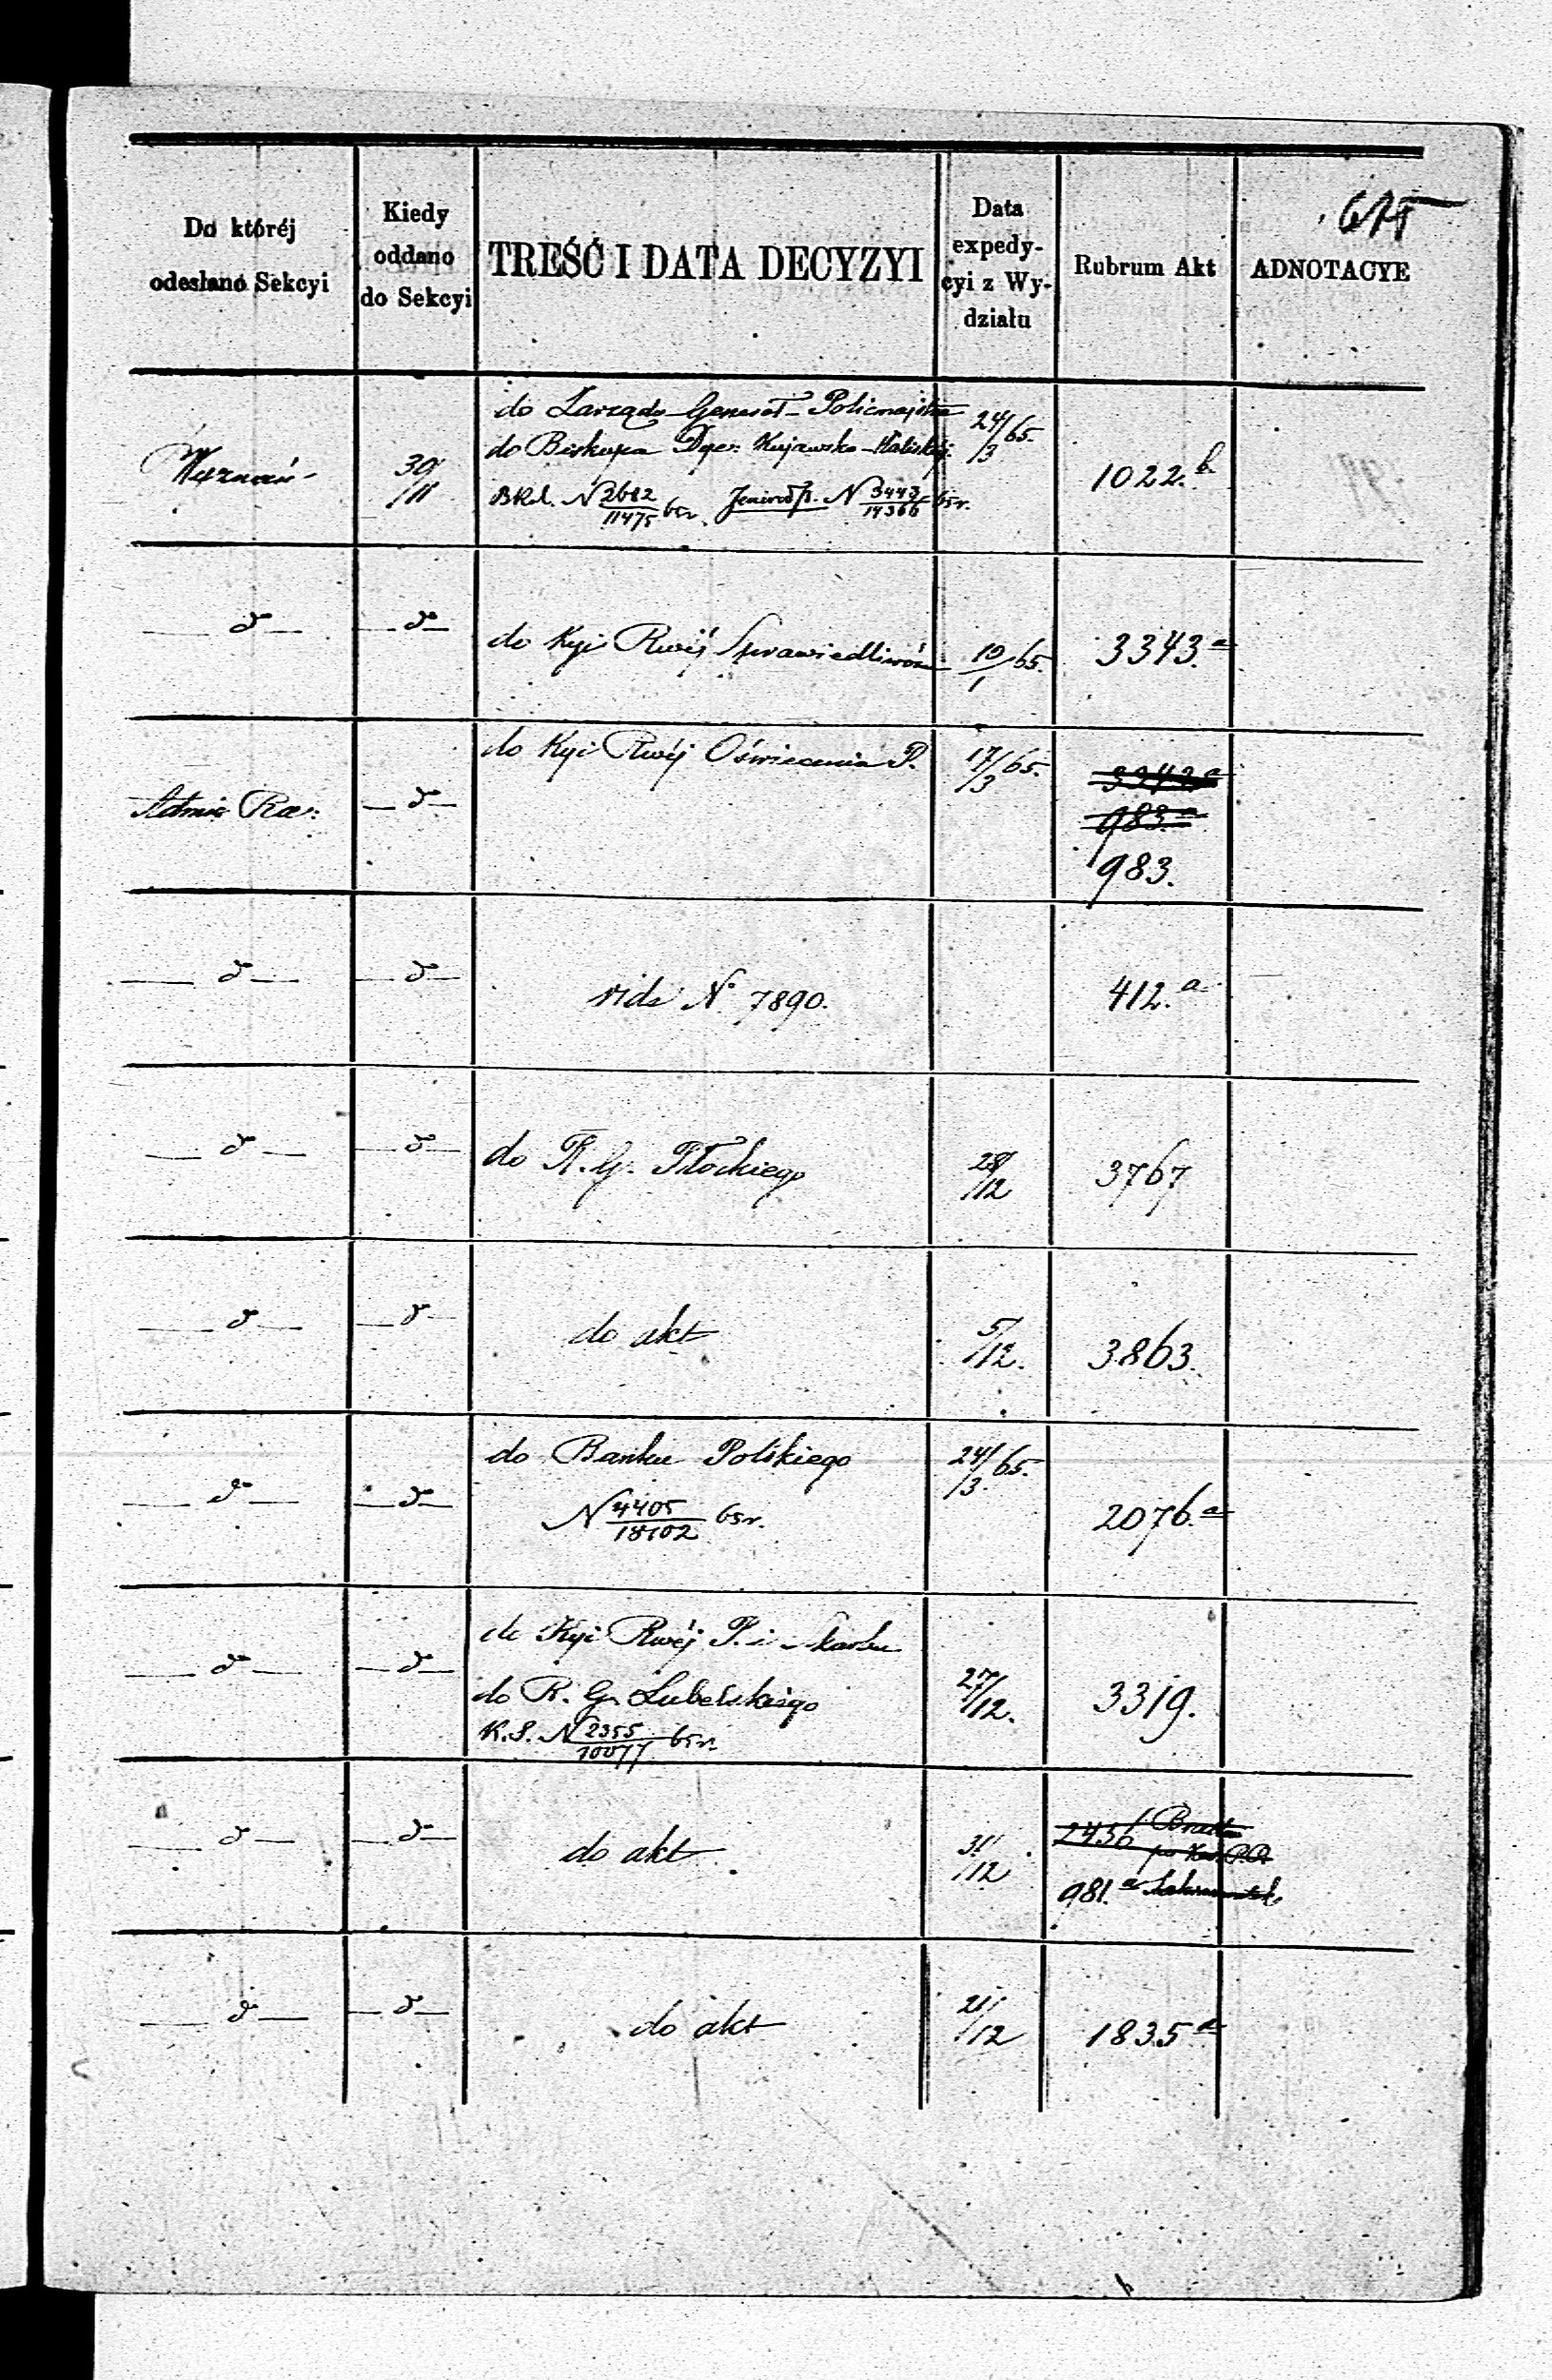 675
Do któréj odesłano Sekcyi
Kiedy oddano do Sekcyi
TREŚĆ I DATA DECYZYI
Data expedycyi z Wydziału
Rubrum Akt
ADNOTACYE
Wyznań
30/11
do Zarządu General-Policmajstra
do Biskupa Dyec. Kujawsko-Kaliskiej
24/3 65.
N 2682/11475 65r. N 3443/14366 65r.
1022.b
do
do
do Kyi Rwéj Sprawiedliwości
10/1 65.
3343.a
Admin
do
do Kyi Rwéj Oświecenia P.
17/3 65.
3343.a
983.a
983.
do
do
vide No 7890.
412.a
do
do
do R. G. Płockiego
28/12
3767
do
do
do akt
5/12.
3863.
do
do
do Banku Polskiego
24/3 65.
N 4405/18102 65r.
2076.a
do
do
do Kyi Rwéj P. i Skarbu
do R. G. Lubelskiego
K.S. N 2355/10077 65r.
27/12.
3319.
do
do
do akt
31/12
2456
981.a
do
do
do akt
21/12
1835.a